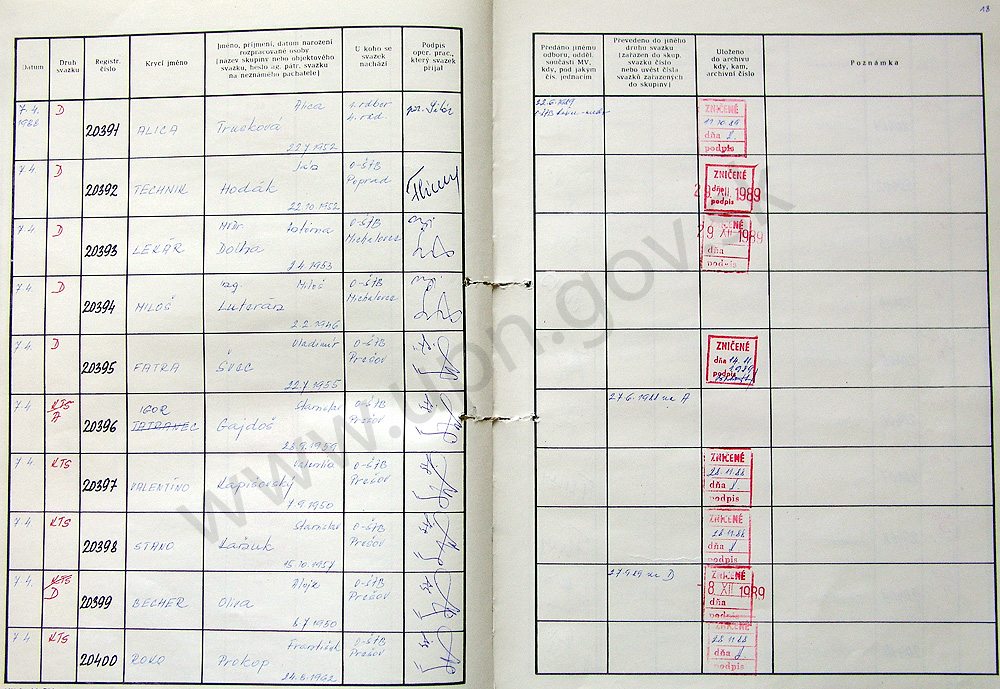 18
Datum
Druh svazku
Registr. číslo
Krycí jméno
Jméno, příjmení, datum narození
rozpracované osoby
(název skupiny nebo objektového
svazku, heslo ag. pátr. svazku
na neznámého pachatele)
U koho se
svazek
nachází
Podpis
oper. prac.,
který svazek
přijal
Předáno jinému
odboru, odděl.
součásti MV,
kdy, pod jakým
čís. jednacím
Převedeno do jiného
druhu svazku
(zařazen do skup.
svazku číslo
nebo uvést čísla
svazků zařazených
do skupiny)
Uloženo
do archivu
kdy, kam,
archivní číslo
Poznámka
7.4. 1988 D 20391 ALICA Alica
22.6.1989
ZNIČENÉ
dňa
podpis
7.4. D 20392 TECHNIK Hodák 22.10.1952 O-ŠTB Poprad
ZNIČENÉ
29. XII. 1989
dňa
podpis
7.4. D 20393 LEKÁR MUDr. Dolha 2.4.1953 O-ŠTB Michalovce
ZNIČENÉ
29 XII 1989
dňa
podpis
7.4. D 20394 MILOŠ Ing. Miloš Luterán 2.2.1946 O-ŠTB Michalovce
7.4. D 20395 FATRA Vladimír Švec 22.7.1955 O-ŠTB Prešov
ZNIČENÉ
dňa 14.11.
1989
podpis
7.4. KTS A 20396 IGOR TATRANEC Stanislav Gajdoš O-ŠTB Prešov
27.6.1988 na A
7.4. KTS 20397 VALENTÍNO Valentín Lapišovský 7.9.1950 O-ŠTB Prešov
ZNIČENÉ
28.11.88
dňa
podpis
7.4. KTS 20398 STANO Stanislav 15.10.1957 O-ŠTB Prešov
ZNIČENÉ
28.11.88
dňa
podpis
7.4. KTS D 20399 BECHER Oliva 8.7.1950 O-ŠTB Prešov
27.9.89 na D
ZNIČENÉ
8 XII 1989
dňa
podpis
7.4. KTS 20400 ROKO František Prokop 24.6.1962 O-ŠTB Prešov
ZNIČENÉ
28.11.88
dňa
podpis
www.upn.gov.sk